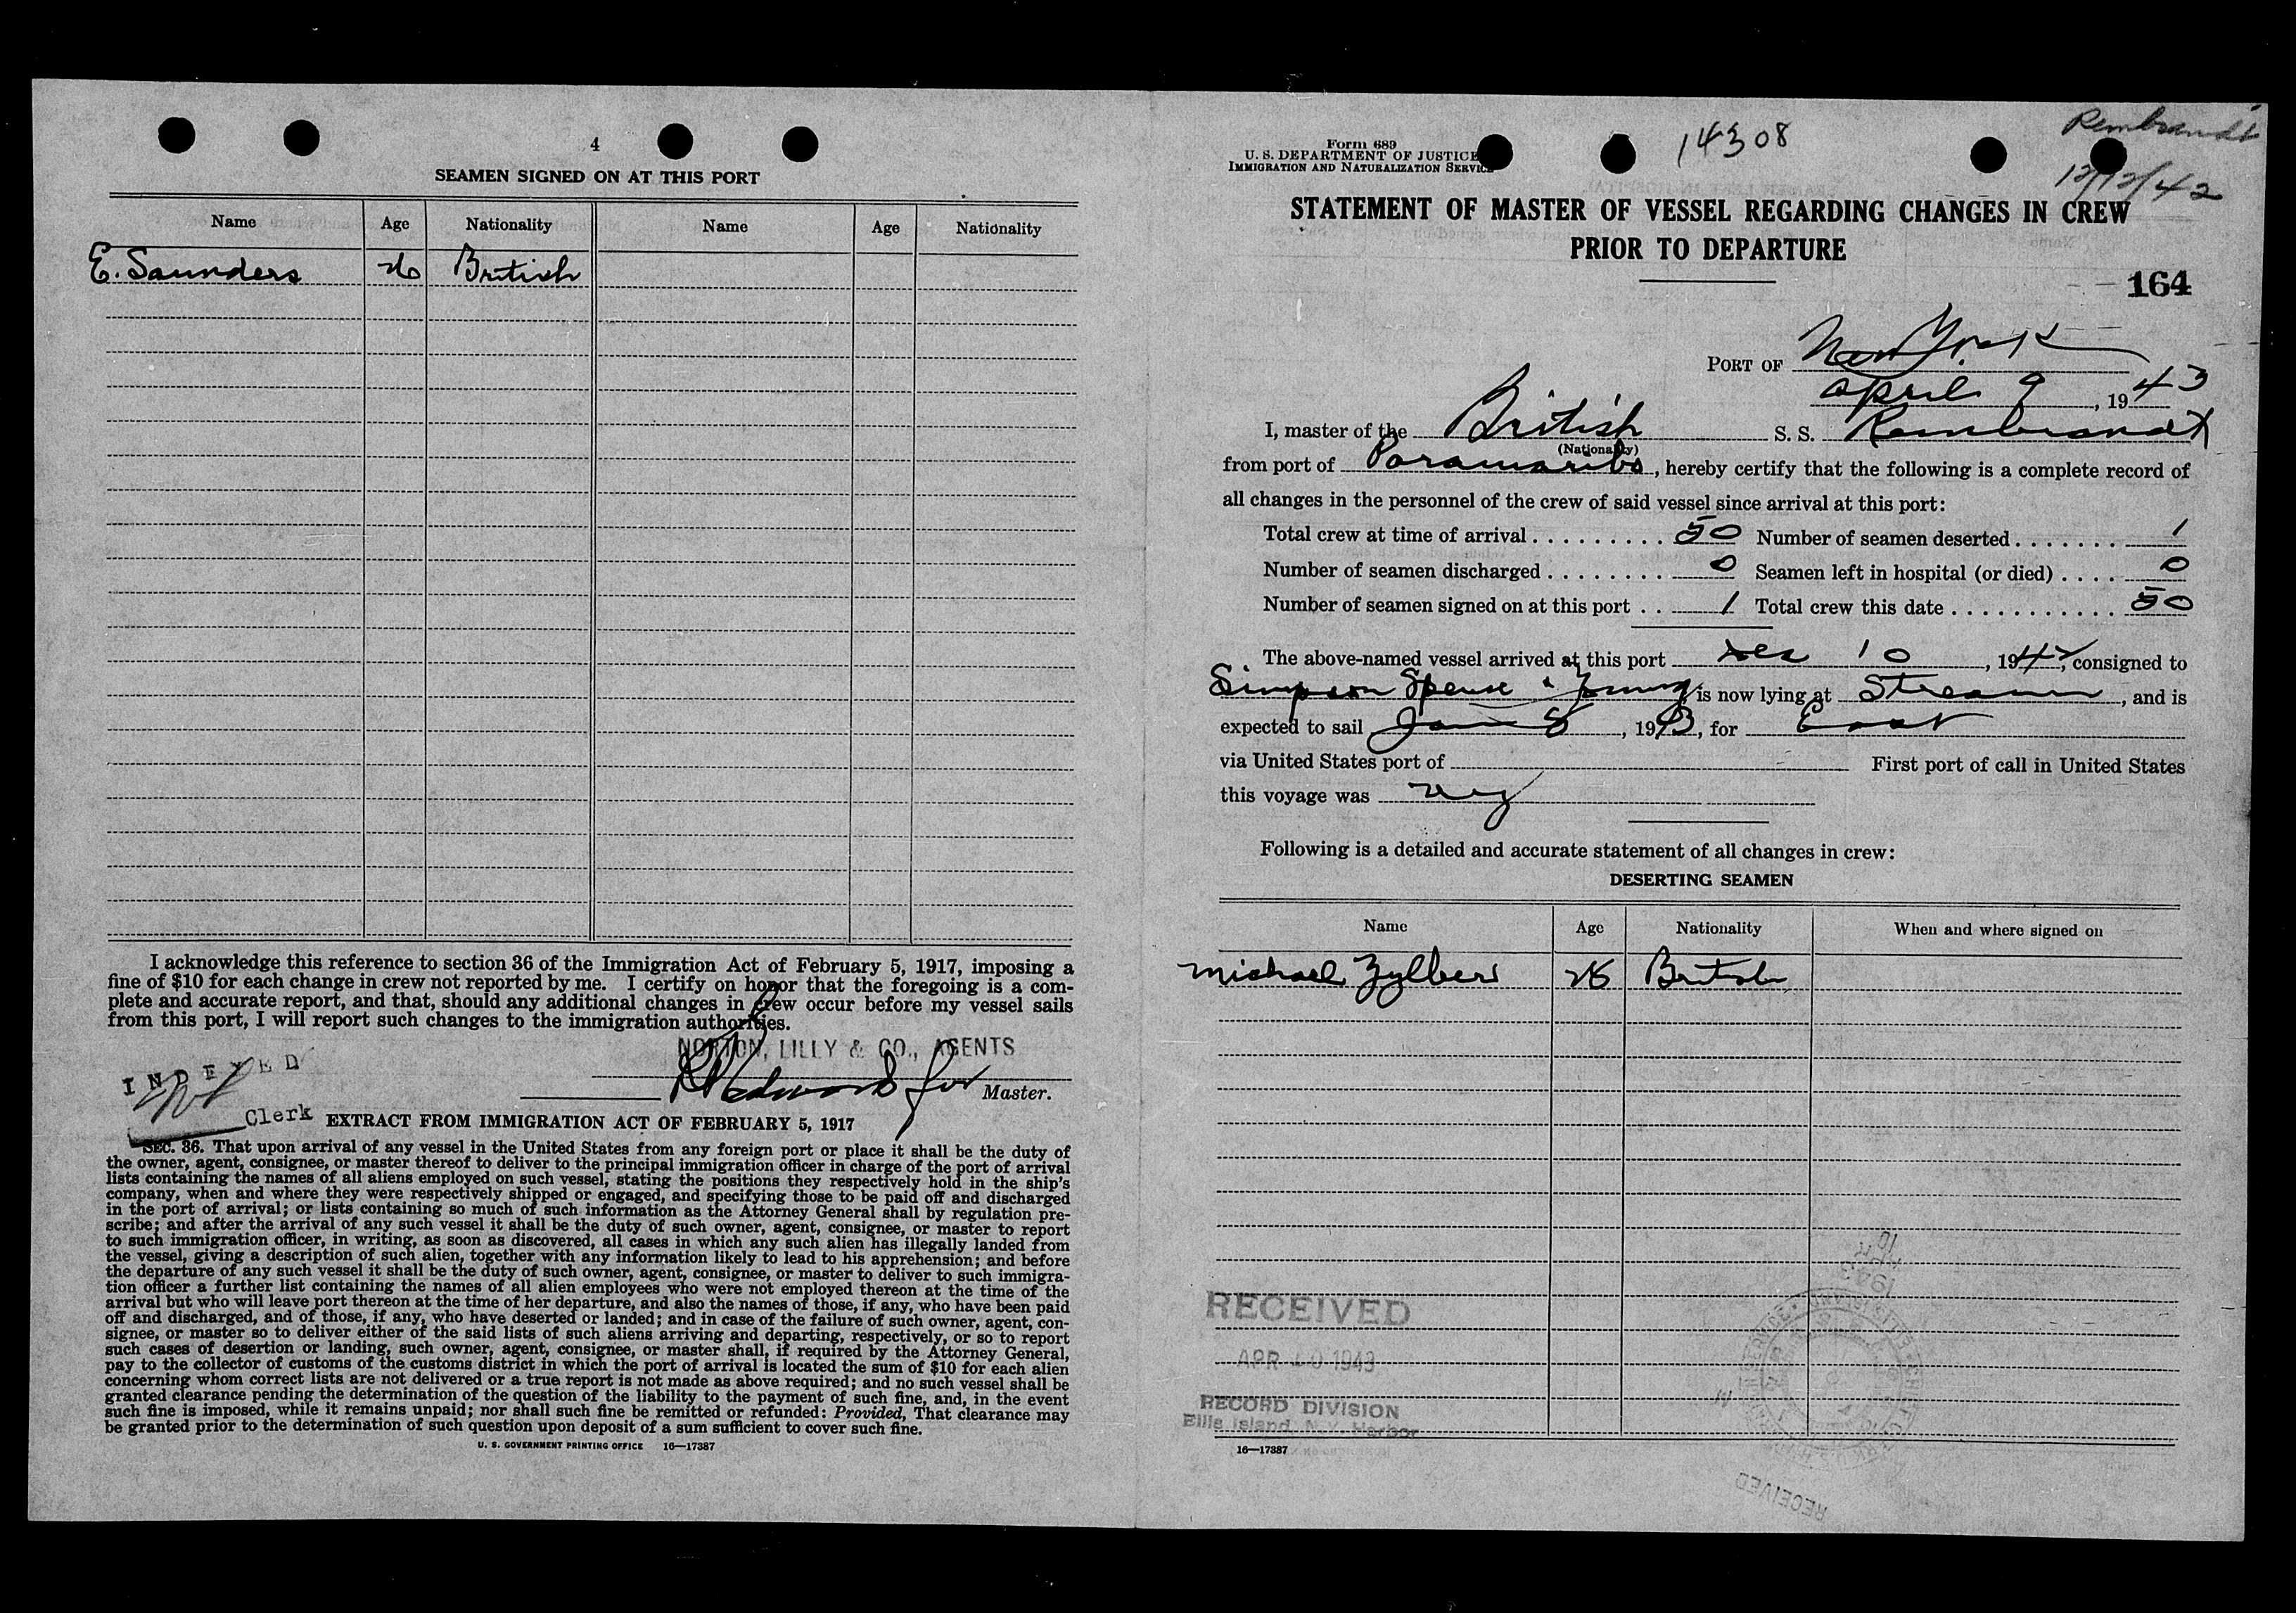 4
SEAMEN SIGNED ON AT THIS PORT
Name Age Nationality Name Age Nationality
E. Saunders 26 British
I acknowledge this reference to section 36 of the Immigration Act of February 5, 1917, imposing a
fine of $10 for each change in crew not reported by me. I certify on honor that the foregoing is a com-
plete and accurate report, and that, should any additional changes in crew occur before my vessel sails
from this port, I will report such changes to the immigration authorities.
NORTON, LILLY & CO., AGENTS
for Master.
INDEXED
Clerk
EXTRACT FROM IMMIGRATION ACT OF FEBRUARY 5, 1917
SEC. 36. That upon arrival of any vessel in the United States from any foreign port or place it shall be the duty of
the owner, agent, consignee, or master thereof to deliver to the principal immigration officer in charge of the port of arrival
lists containing the names of all aliens employed on such vessel, stating the positions they respectively hold in the ship's
company, when and where they were respectively shipped or engaged, and specifying those to be paid off and discharged
in the port of arrival; or lists containing so much of such information as the Attorney General shall by regulation pre-
scribe; and after the arrival of any such vessel it shall be the duty of such owner, agent, consignee, or master to report
to such immigration officer, in writing, as soon as discovered, all cases in which any such alien has illegally landed from
the vessel, giving a description of such alien, together with any information likely to lead to his apprehension; and before
the departure of any such vessel it shall be the duty of such owner, agent, consignee, or master to deliver to such immigra-
tion officer a further list containing the names of all alien employees who were not employed thereon at the time of the
arrival but who will leave port thereon at the time of her departure, and also the names of those, if any, who have been paid
off and discharged, and of those, if any, who have deserted or landed; and in case of the failure of such owner, agent, con-
signee, or master so to deliver either of the said lists of such aliens arriving and departing, respectively, or so to report
such cases of desertion or landing, such owner, agent, consignee, or master shall, if required by the Attorney General,
pay to the collector of customs of the customs district in which the port of arrival is located the sum of $10 for each alien
concerning whom correct lists are not delivered or a true report is not made as above required; and no such vessel shall be
granted clearance pending the determination of the question of the liability to the payment of such fine, and, in the event
such fine is imposed, while it remains unpaid; nor shall such fine be remitted or refunded: Provided, That clearance may
be granted prior to the determination of such question upon deposit of a sum sufficient to cover such fine.
U. S. GOVERNMENT PRINTING OFFICE 16—17387
Form 689
U. S. DEPARTMENT OF JUSTICE
IMMIGRATION AND NATURALIZATION SERVICE
14308
Rembrandt
12/12/42
STATEMENT OF MASTER OF VESSEL REGARDING CHANGES IN CREW
PRIOR TO DEPARTURE
164
PORT OF New York
April 9, 1943
I, master of the British S. S. Rembrandt
(Nationality)
from port of Paramaribo, hereby certify that the following is a complete record of
all changes in the personnel of the crew of said vessel since arrival at this port:
Total crew at time of arrival 50 Number of seamen deserted 1
Number of seamen discharged 0 Seamen left in hospital (or died) 0
Number of seamen signed on at this port 1 Total crew this date 50
The above-named vessel arrived at this port Dec 10, 1942, consigned to
Simpson Spence & Young, is now lying at Stream, and is
expected to sail Jan 8, 1943, for East
via United States port of First port of call in United States
this voyage was NY
Following is a detailed and accurate statement of all changes in crew:
DESERTING SEAMEN
Name Age Nationality When and where signed on
Michael Zylbers British
RECEIVED
APR 10 1943
RECORD DIVISION
Ellis Island, N. Y. Harbor
16—17387
RECEIVED